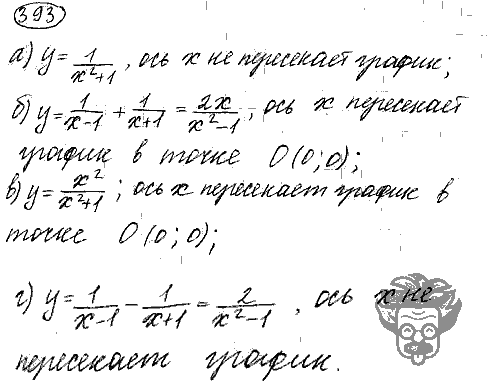 393
а) y = 1/(x²+1), ось x не пересекает график;
б) y = 1/(x-1) + 1/(x+1) = 2x/(x²-1); ось x пересекает
график в точке O (0; 0);
в) y = x²/(x²+1); ось x пересекает график в
точке O (0; 0);
г) y = 1/(x-1) - 1/(x+1) = 2/(x²-1), ось x не
пересекает график.